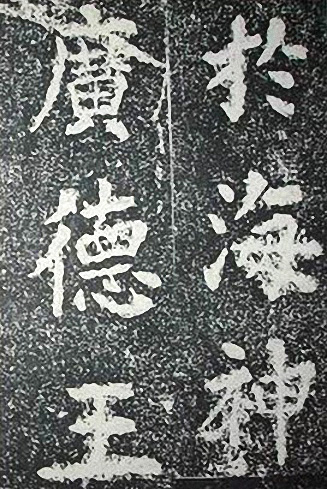 於海神
廣德王